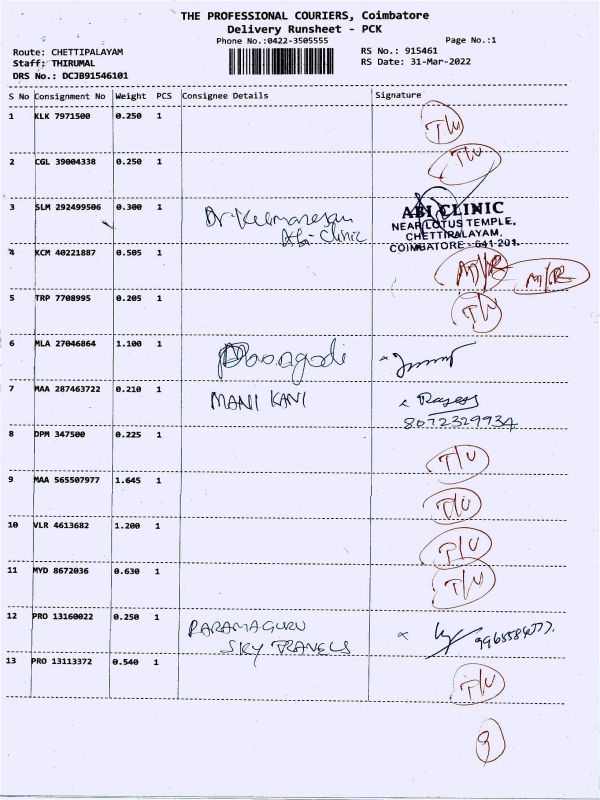 THE PROFESSIONAL COURIERS, Coimbatore
Delivery Runsheet - PCK
Phone No.:0422-3505555
Page No.:1
Route: CHETTIPALAYAM
RS No.: 915461
Staff: THIRUMAL
RS Date: 31-Mar-2022
DRS No.: DCJB91546101
S No Consignment No Weight PCS Consignee Details Signature
1 KLK 7971500 0.250 1 T/U
2 CGL 39004338 0.250 1 T/U
3 SLM 292499506 0.300 1 Dr. Kumaresan
Abi-Clinic
ABI CLINIC
NEAR LOTUS TEMPLE,
CHETTIPALAYAM,
COIMBATORE - 641 201.
4 KCM 40221887 0.505 1
5 TRP 7708995 0.205 1 T/U
6 MLA 27046864 1.100 1
7 MAA 287463722 0.210 1 MANI KANI
8072329934
8 DPM 347500 0.225 1 T/U
9 MAA 565507977 1.645 1 T/U
10 VLR 4613682 1.200 1 T/U
11 MYD 8672036 0.630 1 T/U
12 PRO 13160022 0.250 1 PARAMAGURU
SKY TRAVELS
13 PRO 13113372 0.540 1 T/U
9